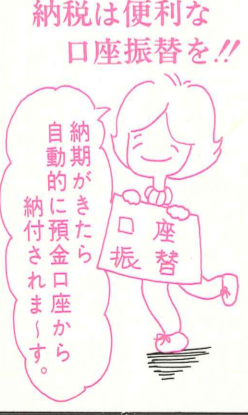 納税は便利な
口座振替を!!
納期がきたら
自動的に預金口座から
納付されま〜す。
口座
振替